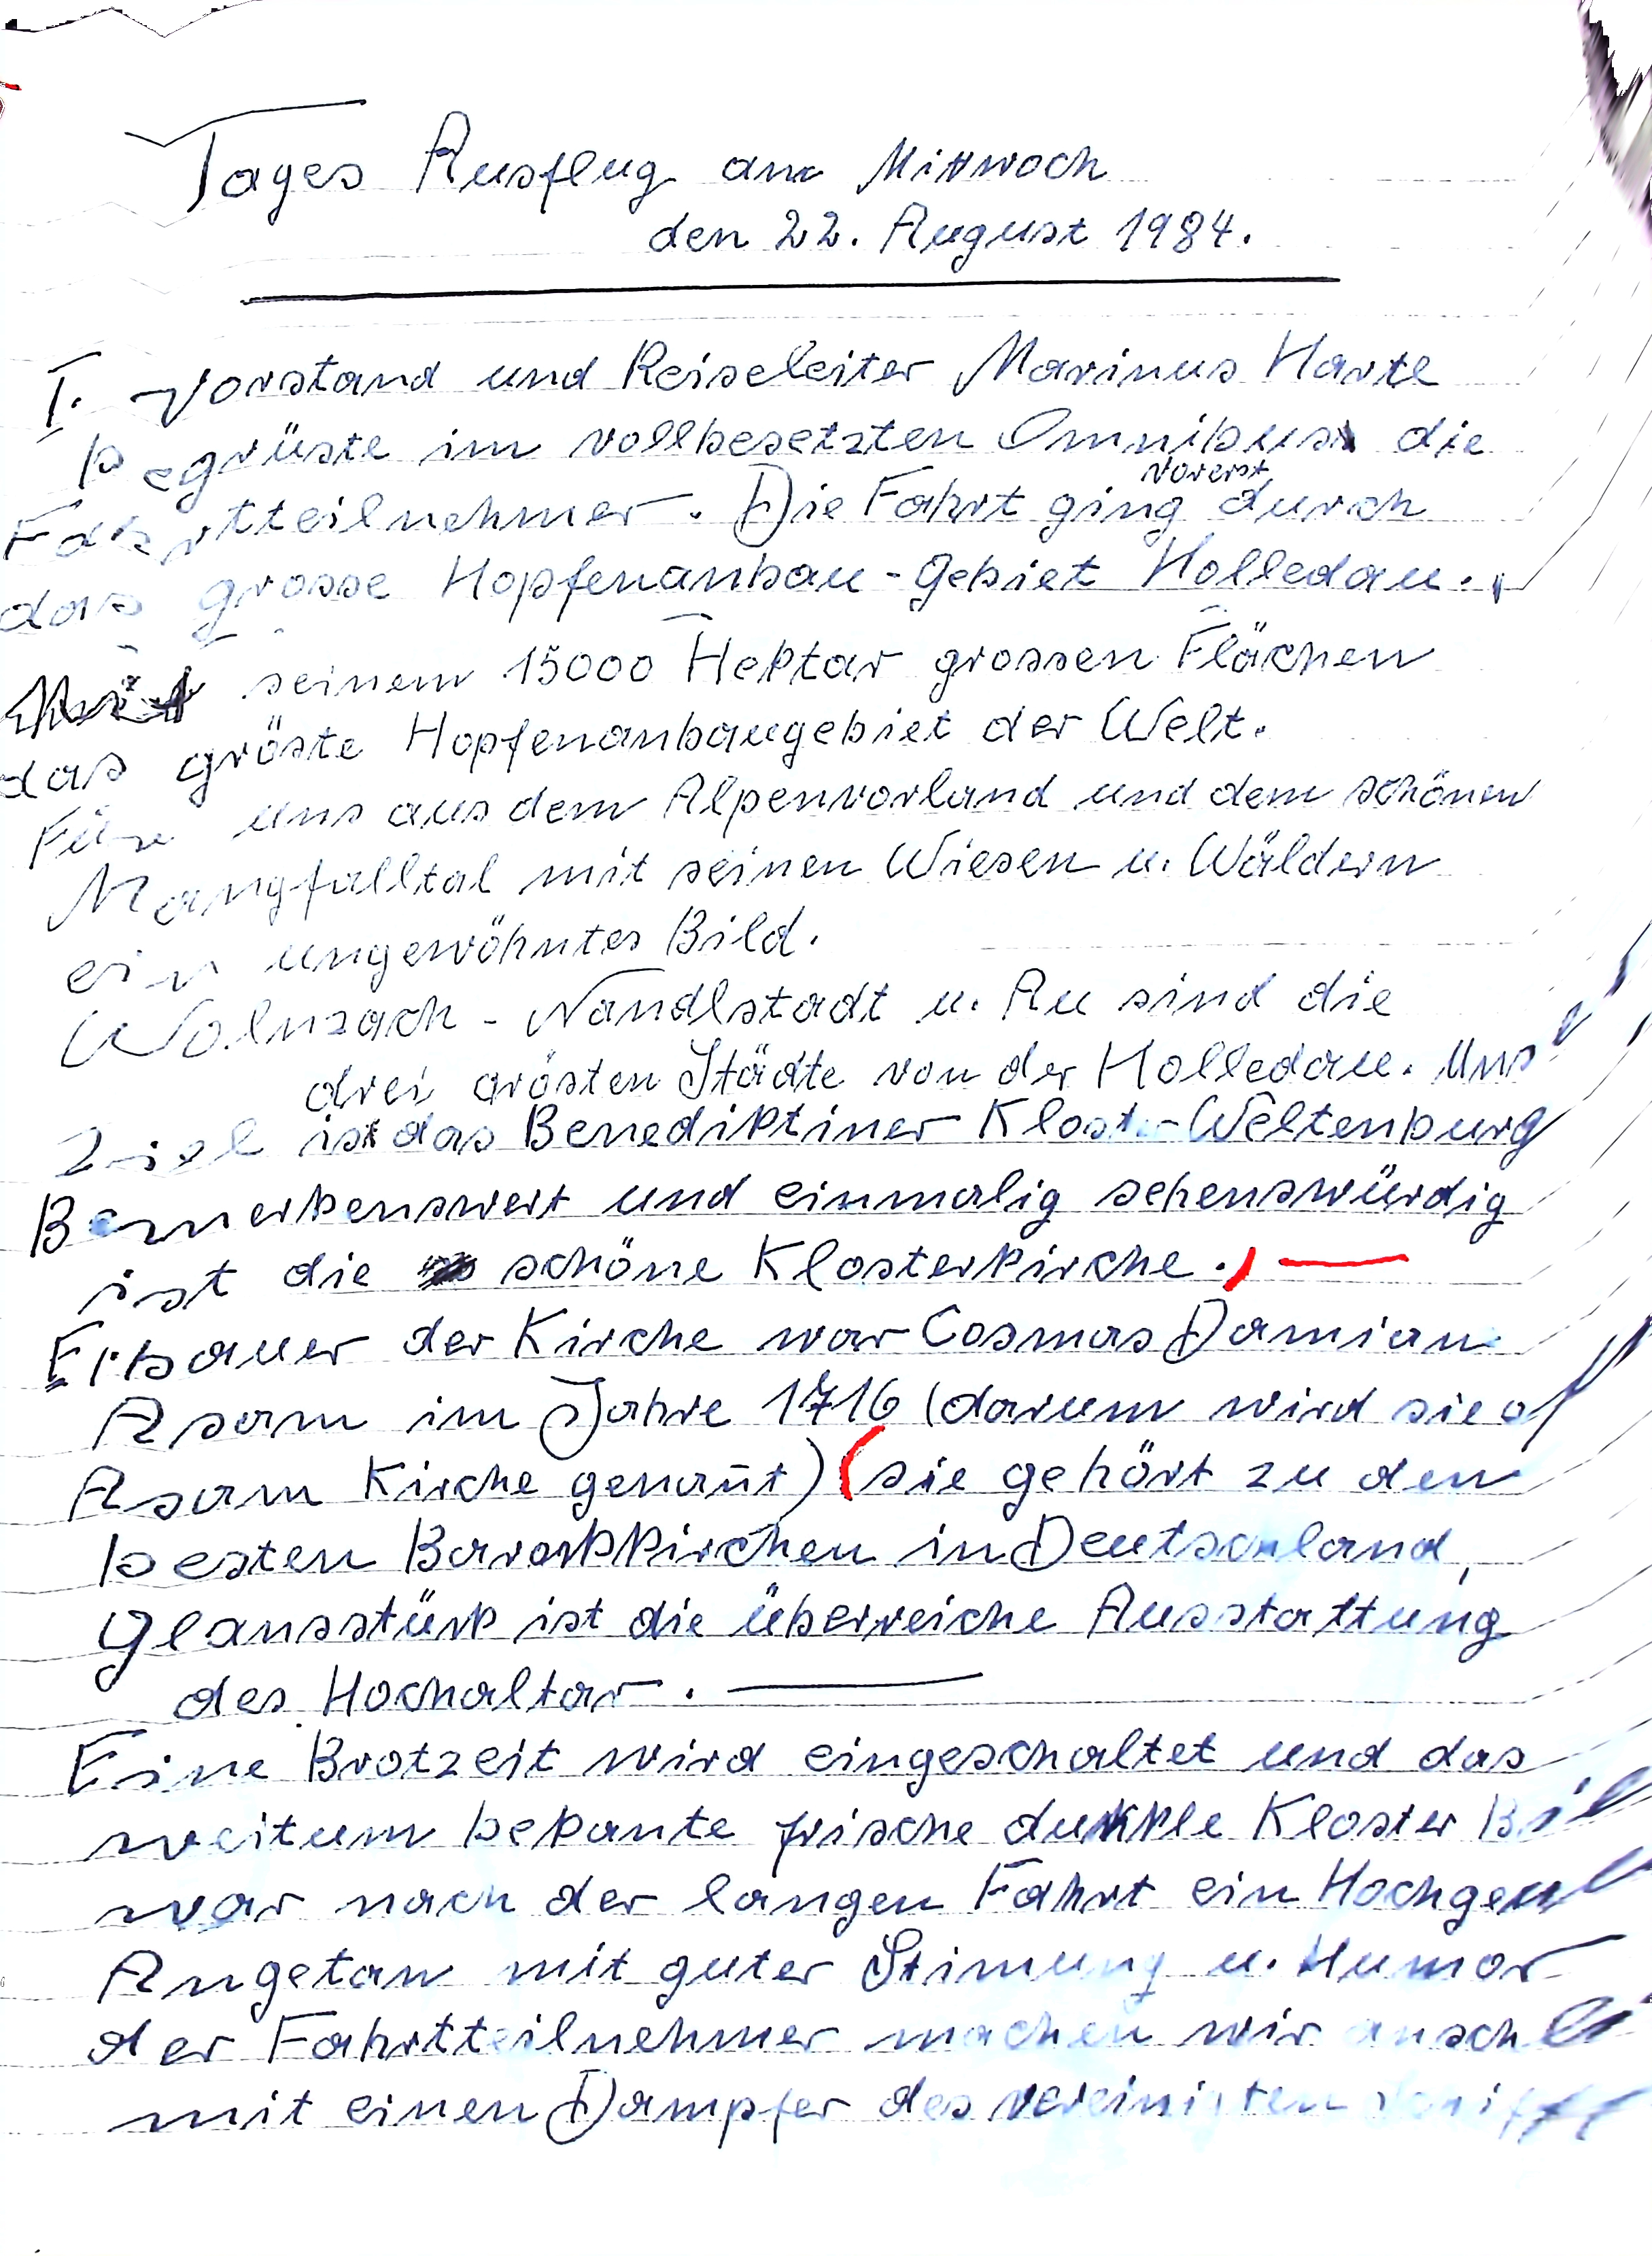 Tages Ausflug am Mittwoch
den 22. August 1984.
I. Vorstand und Reiseleiter Marinus Hartl
begrüste im vollbesetzten Omnibus die
Fahrtteilnehmer. Die Fahrt ging vorerst durch
das grosse Hopfenanbau-gebiet Holledau.,
Mit seinem 15000 Hektar grossen Flächen
das gröste Hopfenanbaugebiet der Welt.
Für uns aus dem Alpenvorland und dem schönen
Mangfalltal mit seinen Wiesen u. Wäldern
ein ungewöhntes Bild.
Wolnzach - Nandlstadt u. Au sind die
drei grösten Städte von der Holledau. Uns
Ziel ist das Benediktiner Kloster-Weltenburg
Bemerkenswert und einmalig sehenswürdig
ist die schöne Klosterkirche., —
Erbauer der Kirche war Cosmas Damian
Asam im Jahre 1716 (darum wird sie
Asam Kirche genan̄t) (sie gehört zu den
besten Barockkirchen in Deutschland,
Glansstück ist die überreiche Ausstattung
des Hochaltar. —
Eine Brotzeit wird eingeschaltet und das
weitum bekante frische dunkle Kloster
war nach der langen Fahrt ein
Angetan mit guter Stimung u. Humor
der Fahrtteilnehmer machen wir
mit einen Dampfer des vereinigten